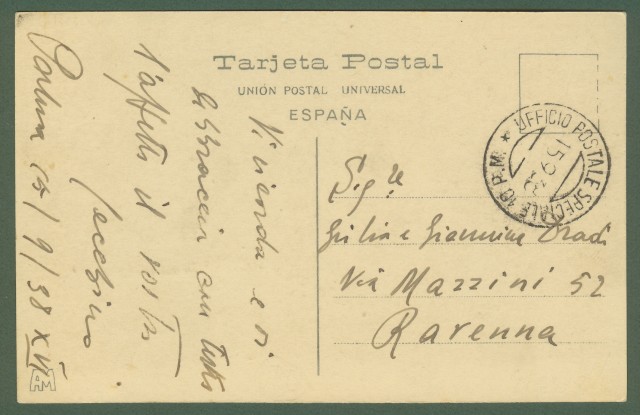 Tarjeta Postal
UNIÓN POSTAL UNIVERSAL
ESPAÑA
UFFICIO POSTALE SPECIALE 10 P.M. ★
15.9.38
Vi ricorda e vi
abbraccia con tutto
l'affetto il vostro
15/9/38 XVI
Sig.re
Giulia e Giannina
Via Mazzini 52
Ravenna
AM